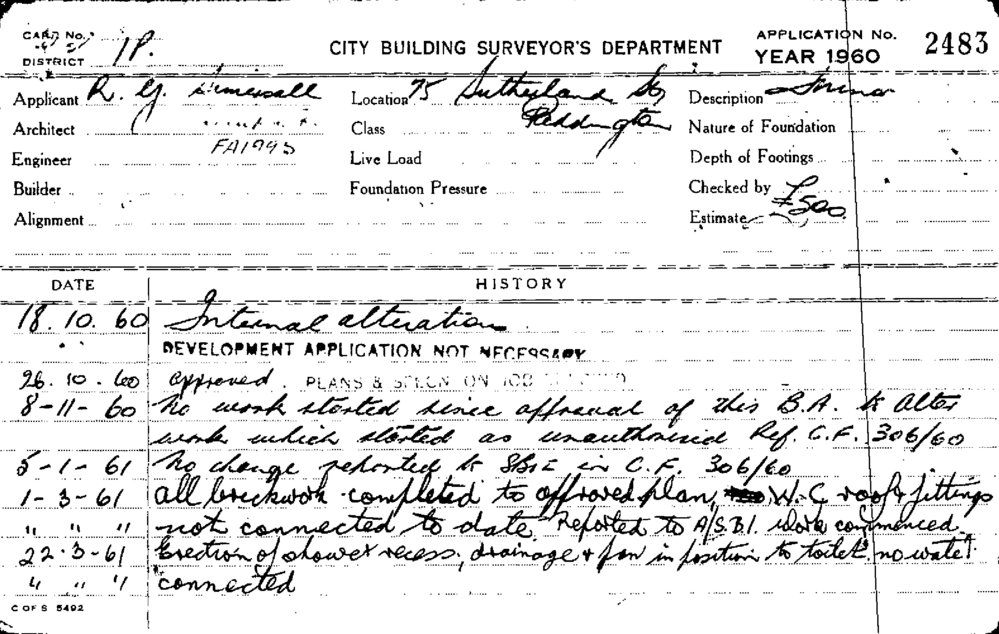 CARD No.
DISTRICT 1P.
CITY BUILDING SURVEYOR'S DEPARTMENT
APPLICATION No.
YEAR 1960
2483
Applicant R. G.
Location 75 Sutherland St
Paddington
Description
Architect
FA1995
Class
Nature of Foundation
Engineer
Live Load
Depth of Footings
Builder
Foundation Pressure
Checked by
Alignment
Estimate £500.
DATE
HISTORY
18.10.60 Internal alterations
" " DEVELOPMENT APPLICATION NOT NECESSARY
26.10.60 approved. PLANS & SPECN ON JOB
8-11-60 No work started since approval of this B.A. to alter
work which started as unauthorised Ref. C.F. 306/60
5-1-61 No change reported to SBI in C.F. 306/60
1-3-61 all brickwork completed to approved plan, W.C roof & fittings
" " " not connected to date. Reported to A/S.B.I. work commenced.
22.3-61 Erection of shower recess, drainage & pan in position to toilet, no water
" " " connected
C OF S 5492